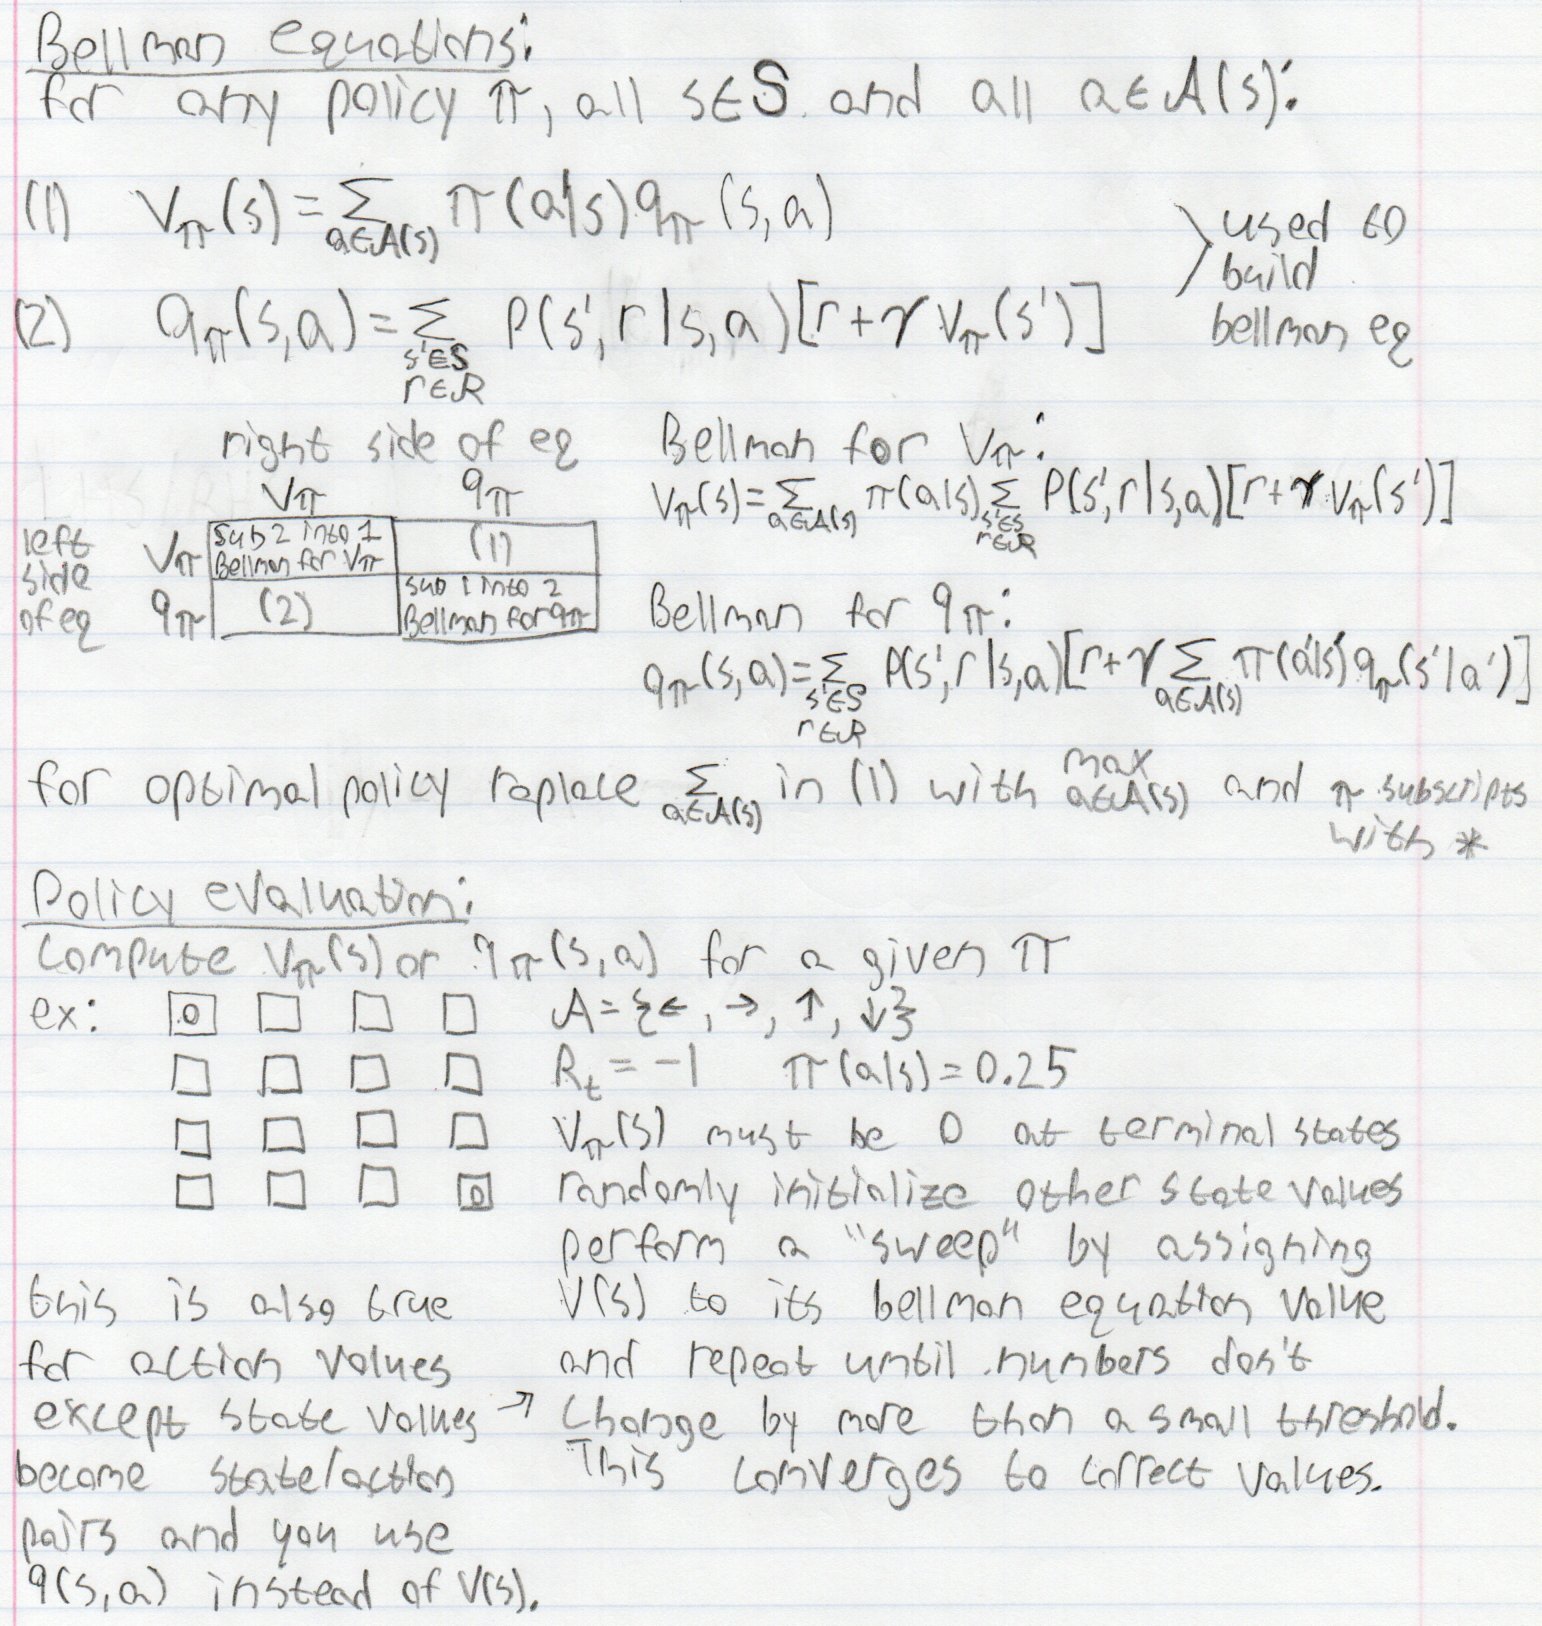 Bellman equations:
for any policy π, all s∈S and all a∈A(s):
(1) Vπ(s) = Σ a∈A(s) π(a|s) qπ(s,a)
(2) qπ(s,a) = Σ s'∈S r∈R P(s',r|s,a)[r+γVπ(s')]
used to
build
bellman eq
right side of eq
Vπ qπ
left
side
of eq
Vπ
sub 2 into 1
Bellman for Vπ
(1)
qπ
(2)
sub 1 into 2
Bellman for qπ
Bellman for Vπ:
Vπ(s) = Σ a∈A(s) π(a|s) Σ s'∈S r∈R P(s',r|s,a)[r+γVπ(s')]
Bellman for qπ:
qπ(s,a) = Σ s'∈S r∈R P(s',r|s,a)[r+γ Σ a∈A(s) π(a'|s') qπ(s'|a')]
for optimal policy replace Σ a∈A(s) in (1) with max a∈A(s) and π subscripts
with *
Policy evaluation:
compute Vπ(s) or qπ(s,a) for a given π
ex:
0
0
A={←,→,↑,↓}
Rt = -1 π(a|s)=0.25
Vπ(s) must be 0 at terminal states
randomly initialize other state values
perform a "sweep" by assigning
V(s) to its bellman equation value
and repeat until numbers don't
change by more than a small threshold.
This converges to correct values.
this is also true
for action values
except state values →
become state/action
pairs and you use
q(s,a) instead of V(s).